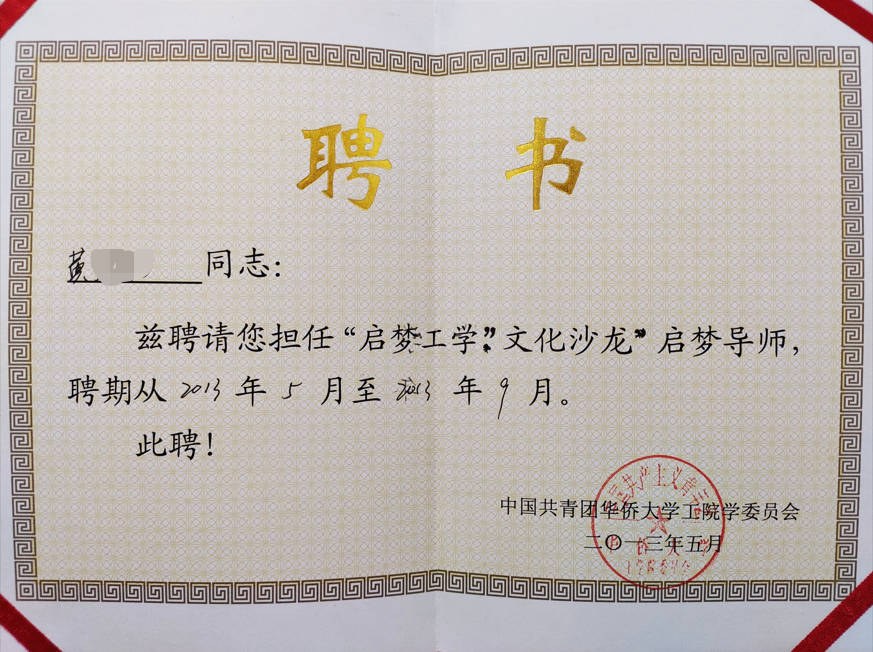 聘书
同志：
兹聘请您担任“启梦工学”文化沙龙”启梦导师，
聘期从 2013 年 5 月至 2013 年 9 月。
此聘！
中国共青团华侨大学工院学委员会
二〇一三年五月